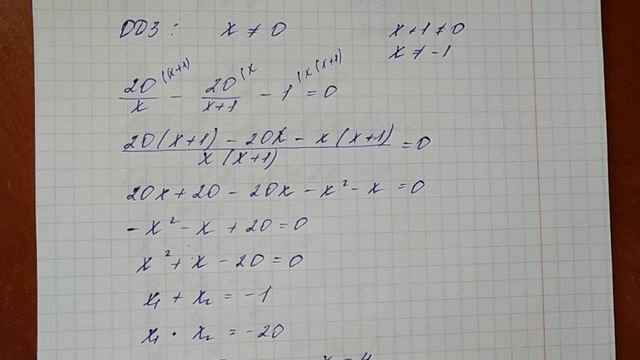 ОДЗ: x ≠ 0 x+1 ≠ 0
x ≠ -1
20/x ^(x+1) - 20/(x+1) ^(x - 1 ^(x(x+1) = 0
(20(x+1) - 20x - x(x+1))/(x(x+1)) = 0
20x + 20 - 20x - x² - x = 0
-x² - x + 20 = 0
x² + x - 20 = 0
x₁ + x₂ = -1
x₁ · x₂ = -20